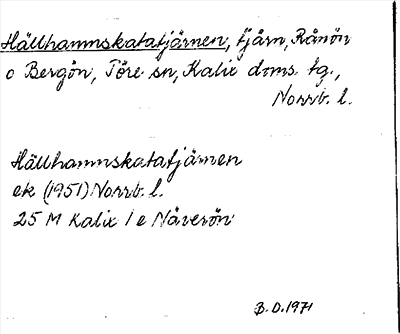 Hällhamnskatatjärnen, tjärn, Rånön
o Bergön, Töre sn, Kalix doms. tg.,
Norrb. l.
Hällhamnskatatjärnen
ek (1951) Norrb. l.
25 M Kalix 1 e Näverön
B.D. 1971